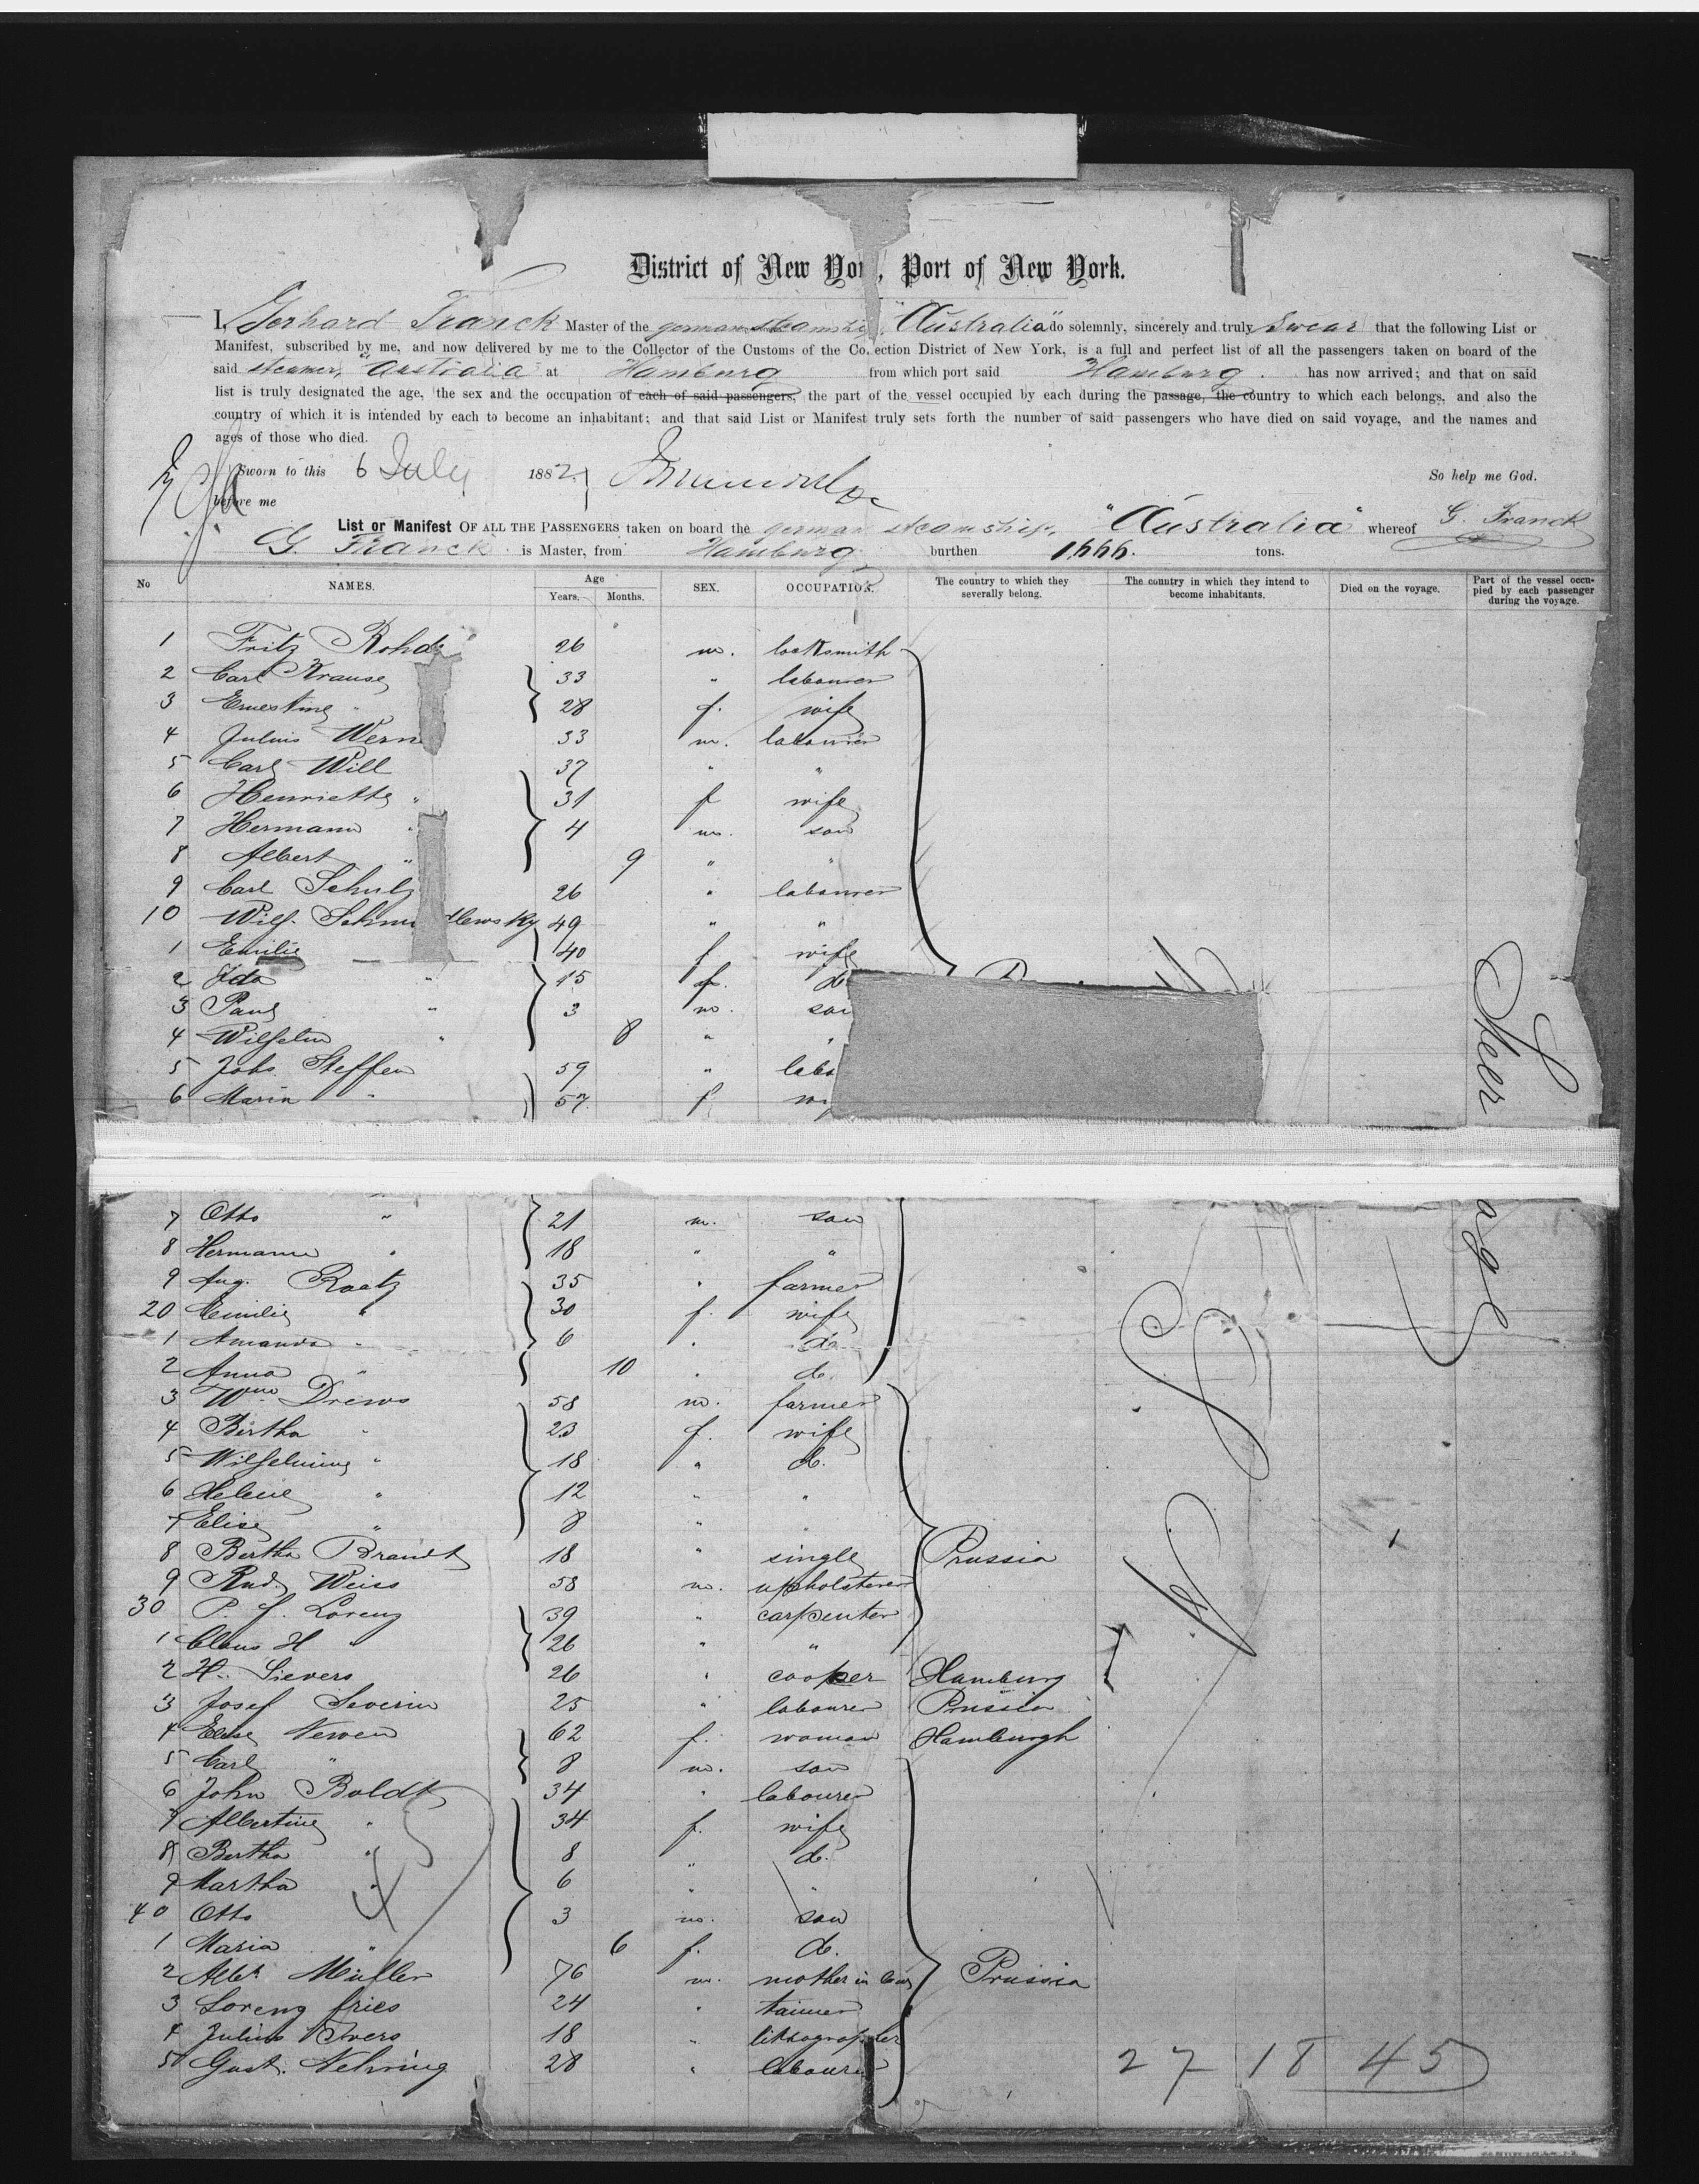 District of New Yor , Port of New York.
I, Gerhard Franck Master of the german steamship "Australia" do solemnly, sincerely and truly swear that the following List or
Manifest, subscribed by me, and now delivered by me to the Collector of the Customs of the Co ection District of New York, is a full and perfect list of all the passengers taken on board of the
said steamer, "Australia at Hamburg from which port said Hamburg. has now arrived; and that on said
list is truly designated the age, the sex and the occupation of each of said passengers, the part of the vessel occupied by each during the passage, the country to which each belongs, and also the
country of which it is intended by each to become an inhabitant; and that said List or Manifest truly sets forth the number of said passengers who have died on said voyage, and the names and
ages of those who died.
Sworn to this 6 July 1882. So help me God.
before me
List or Manifest OF ALL THE PASSENGERS taken on board the german steamship, "Australia" whereof G. Franck
G. Franck is Master, from Hamburg burthen 1,666. tons.
No NAMES. Age Years. Months. SEX. OCCUPATION. The country to which they severally belong. The country in which they intend to become inhabitants. Died on the voyage. Part of the vessel occupied by each passenger during the voyage.
1 Fritz Rohde 26 m. locksmith
2 Carl Krause 33 " labourer
3 Ernestine " 28 f. wife
4 Julius Wern 33 m. labourer
5 Carl Will 37 " "
6 Henriette " 31 f wife
7 Hermann " 4 m. son
8 Albert " 9 " "
9 Carl Schulz 26 " labourer
10 Wilh. Schm dlewsky 49 " "
1 Emilie 40 f wife
2 Ida " 15 f. d
3 Paul " 3 m. son
4 Wilhelm " 8 "
5 Johs. Steffen 59 " labo
6 Maria " 57 f. wi
Steerage
7 Otto " 21 m. son
8 Hermann " 18 " "
9 Aug. Raatz 35 " farmer
20 Emilie " 30 f. wife
1 Amanda " 6 " d.
2 Anna " 10 " d.
3 Wm. Drews 58 m. farmer
4 Bertha " 23 f. wife
5 Wilhelmine " 18 " d.
6 Helene " 12 " "
7 Elise " 8 " "
8 Bertha Brandt 18 " single Prussia
9 Rud. Weiss 58 m. upholsterer
30 P. J. Lorenz 39 " carpenter
1 Claus H " 26 " "
2 H. Sievers 26 " cooper Hamburg
3 Josef Severin 25 " labourer Prussia
4 Elise Newen 62 f. woman Hamburgh
5 Carl " 8 m. son
6 John Boldt 34 " labourer
7 Albertine " 34 f. wife
8 Bertha " 8 " d.
9 Martha " 6 " "
40 Otto 3 m. son
1 Maria " 6 f. d.
2 Albt. Müller 76 m. mother in law Prussia
3 Lorenz fries 24 " tanner
4 Julius Ivers 18 " lithographer
5 Gust. Nehring 28 " labourer
27 18 45